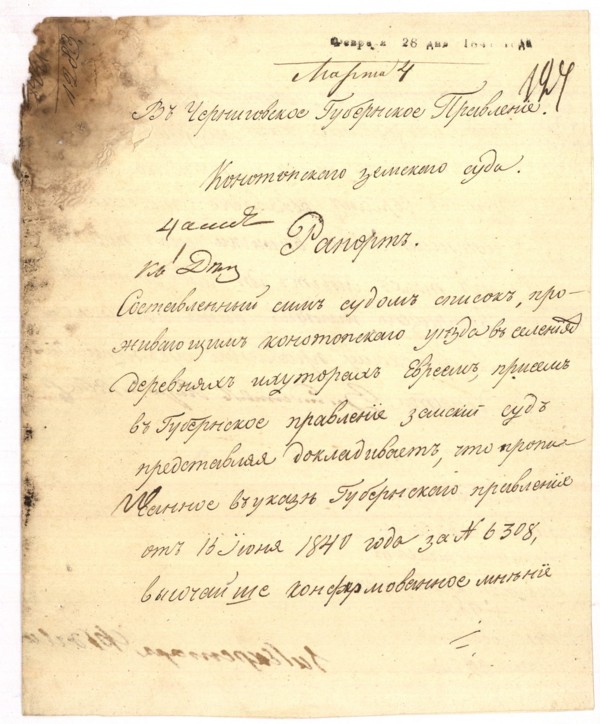 Февраля 28 дня 184 года
Марта 4
124
Въ Черниговское Губернское Правленіе.
Конотопскаго земскаго суда.
Рапортъ.
къ
Составленный симъ судомъ списокъ, про-
живающимъ конотопскаго уѣзда въ селенія
деревняхъ ихуторахъ Евреемъ, присемъ
въ Губернское правленіе земскій судъ
представляя докладиваетъ, что пропи-
санное въ указѣ Губернскаго правленія
отъ 15 Іюня 1840 года за № 6308,
височайше конфирмованное мнѣніе